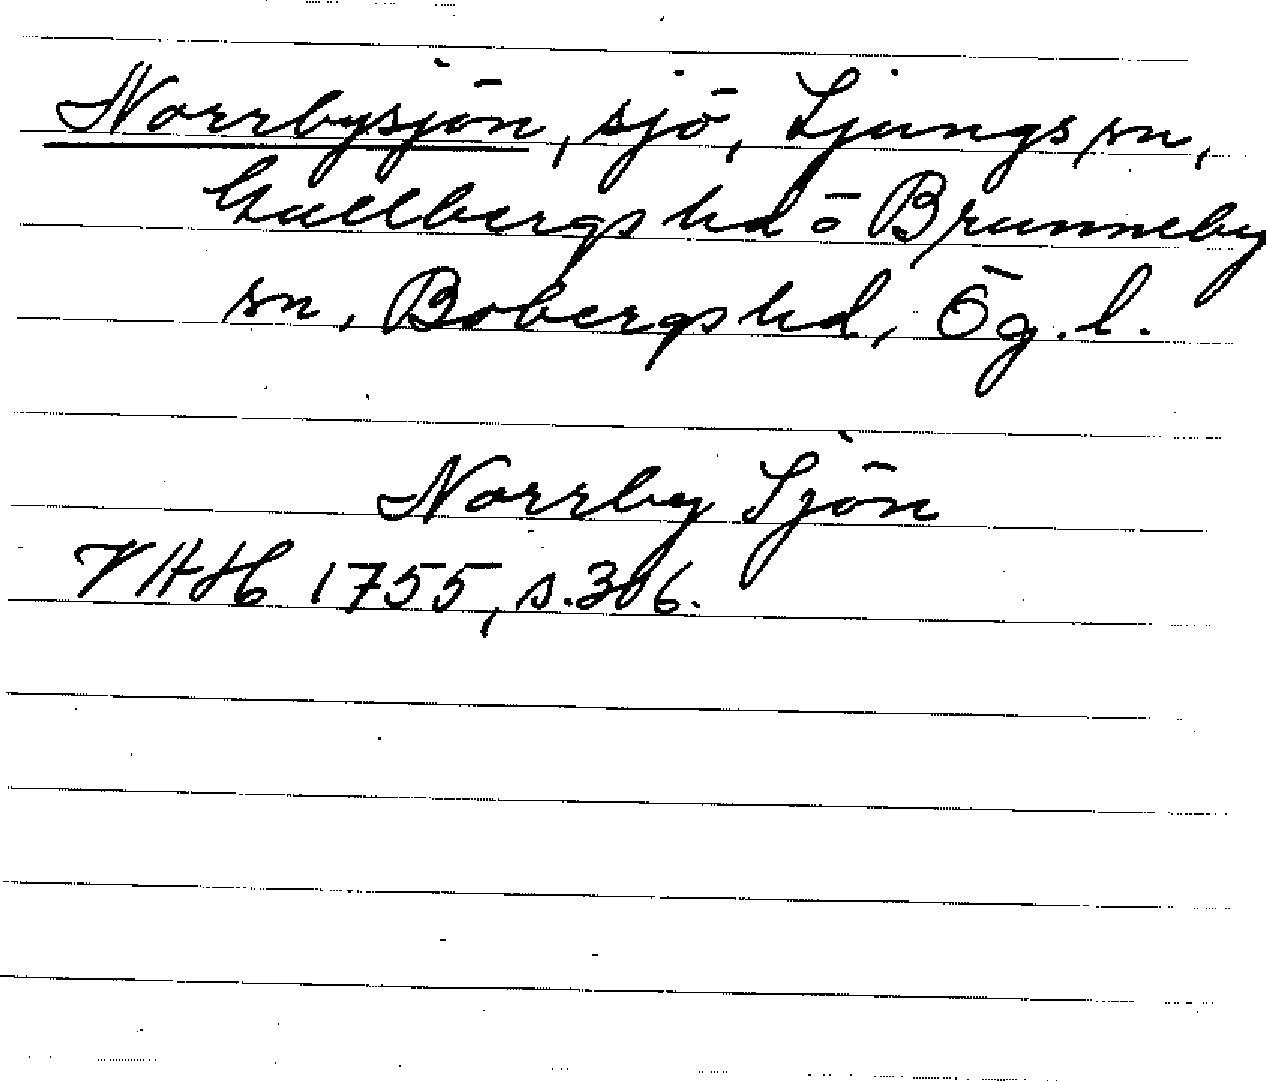 Norrbysjön, sjö, Ljungs sn,
Gullbergs hd o Brunneby
sn, Bobergs hd, Ög. l.
Norrby Sjön
VHAH 1755, s. 306.